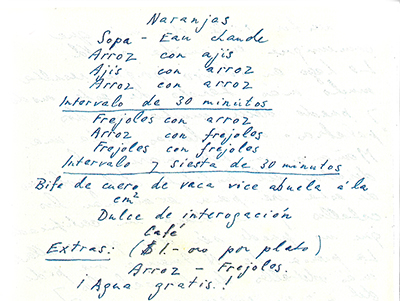 Naranjas
Sopa - Eau chaude
Arroz con ajis
Ajis con arroz
Arroz con arroz
Intervalo de 30 minutos
Frejolos con arroz
Arroz con frejoles
Frejoles con frejoles
Intervalo y siesta de 30 minutos
Bife de cuero de vaca vice abuela á la
cm²
Dulce de interogación
Café
Extras: ($ 1.- oro por plato)
Arroz - Frejoles.
¡Agua gratis!